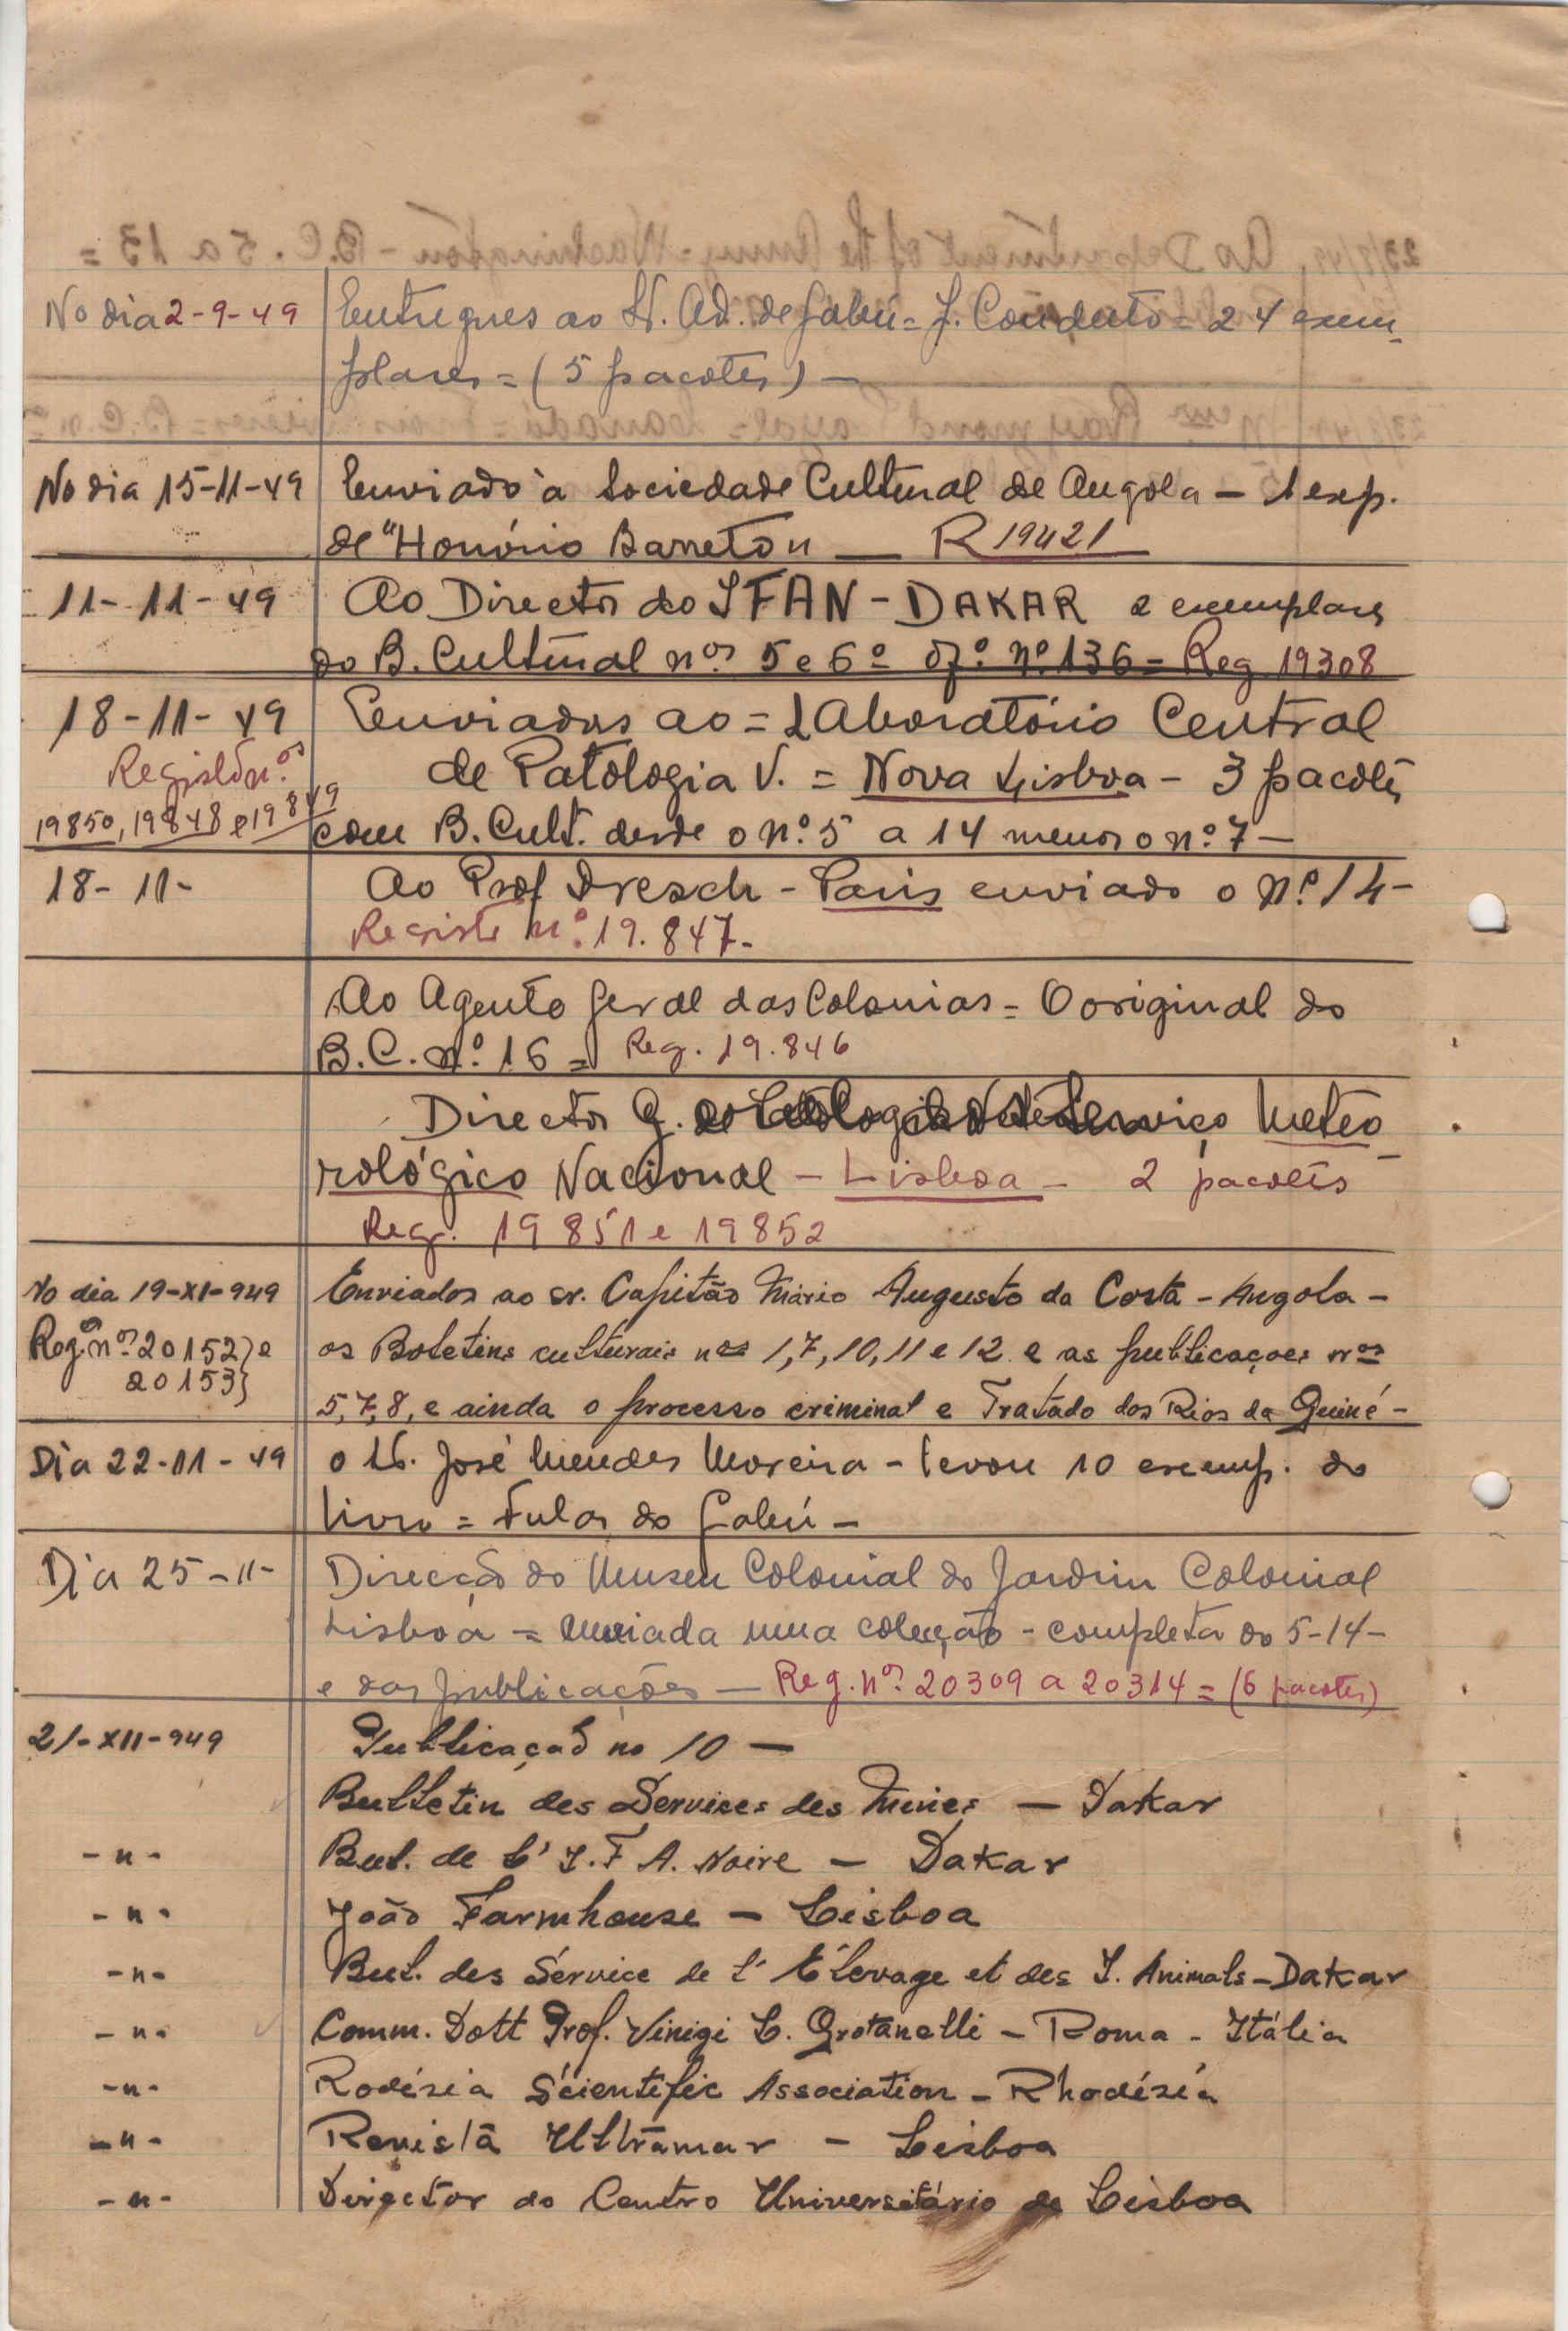 No dia 2-9-49 Entregues ao Sr. Ad. de Gabú = J. Conduto = 24 exem-
plares = (5 pacotes) —
No dia 15-11-49 Enviado à Sociedade Cultural de Angola — 1 exp.
de "Honório Barreto" — R 19421
11-11-49 Ao Director do IFAN - DAKAR 2 exemplares
do B. Cultural nos 5 e 6 = of.º nº 136 = Reg 19308
18-11-49 Enviados ao = Laboratório Central
Registo n.os de Patologia V. = Nova Lisboa - 3 pacotes
19850, 19848 e 19849 com B. Cult. desde o n.º 5 a 14 menos o n.º 7 —
18-11- Ao Prof Dresch - Paris enviado o n.º 14 -
Registo n.º 19.847.
Ao Agente Geral das Colonias = O original do
B.C. n.º 16 = Reg. 19.846
Director G. do Serviço Meteo
rológico Nacional - Lisboa - 2 pacotes
Reg. 19851 e 19852
No dia 19-XI-949 Enviados ao sr. Capitão Mário Augusto da Costa - Angola -
Reg. nos 20152) e os Boletins culturais nos 1, 7, 10, 11 e 12 e as publicações nos
20153} 5, 7, 8, e ainda o processo criminal e Tratado dos Rios da Guiné -
Dia 22-11-49 o Sr. José Mendes Moreira - levou 10 exemp. do
livro = Fulas do Gabú -
Dia 25-11- Direcção do Museu Colonial do Jardim Colonial
Lisboa = enviada uma colecção - completa do 5-14 -
e das publicações — Reg. nos 20309 a 20314 = (6 pacotes)
21-XII-949 Publicação no 10 —
Bulletin des Services des Mines — Dakar
-"- Bul. de l' I. F A. Noire — Dakar
-"- João Farmhouse — Lisboa
-"- Bul. des Service de l' Élevage et des I. Animals - Dakar
-"- Comm. Dott Prof. Vinigi L. Grotanelli - Roma - Itália
-"- Rodésia Scientific Association - Rhodésia
-"- Revista Ultramar - Lisboa
-"- Director do Centro Universitário de Lisboa